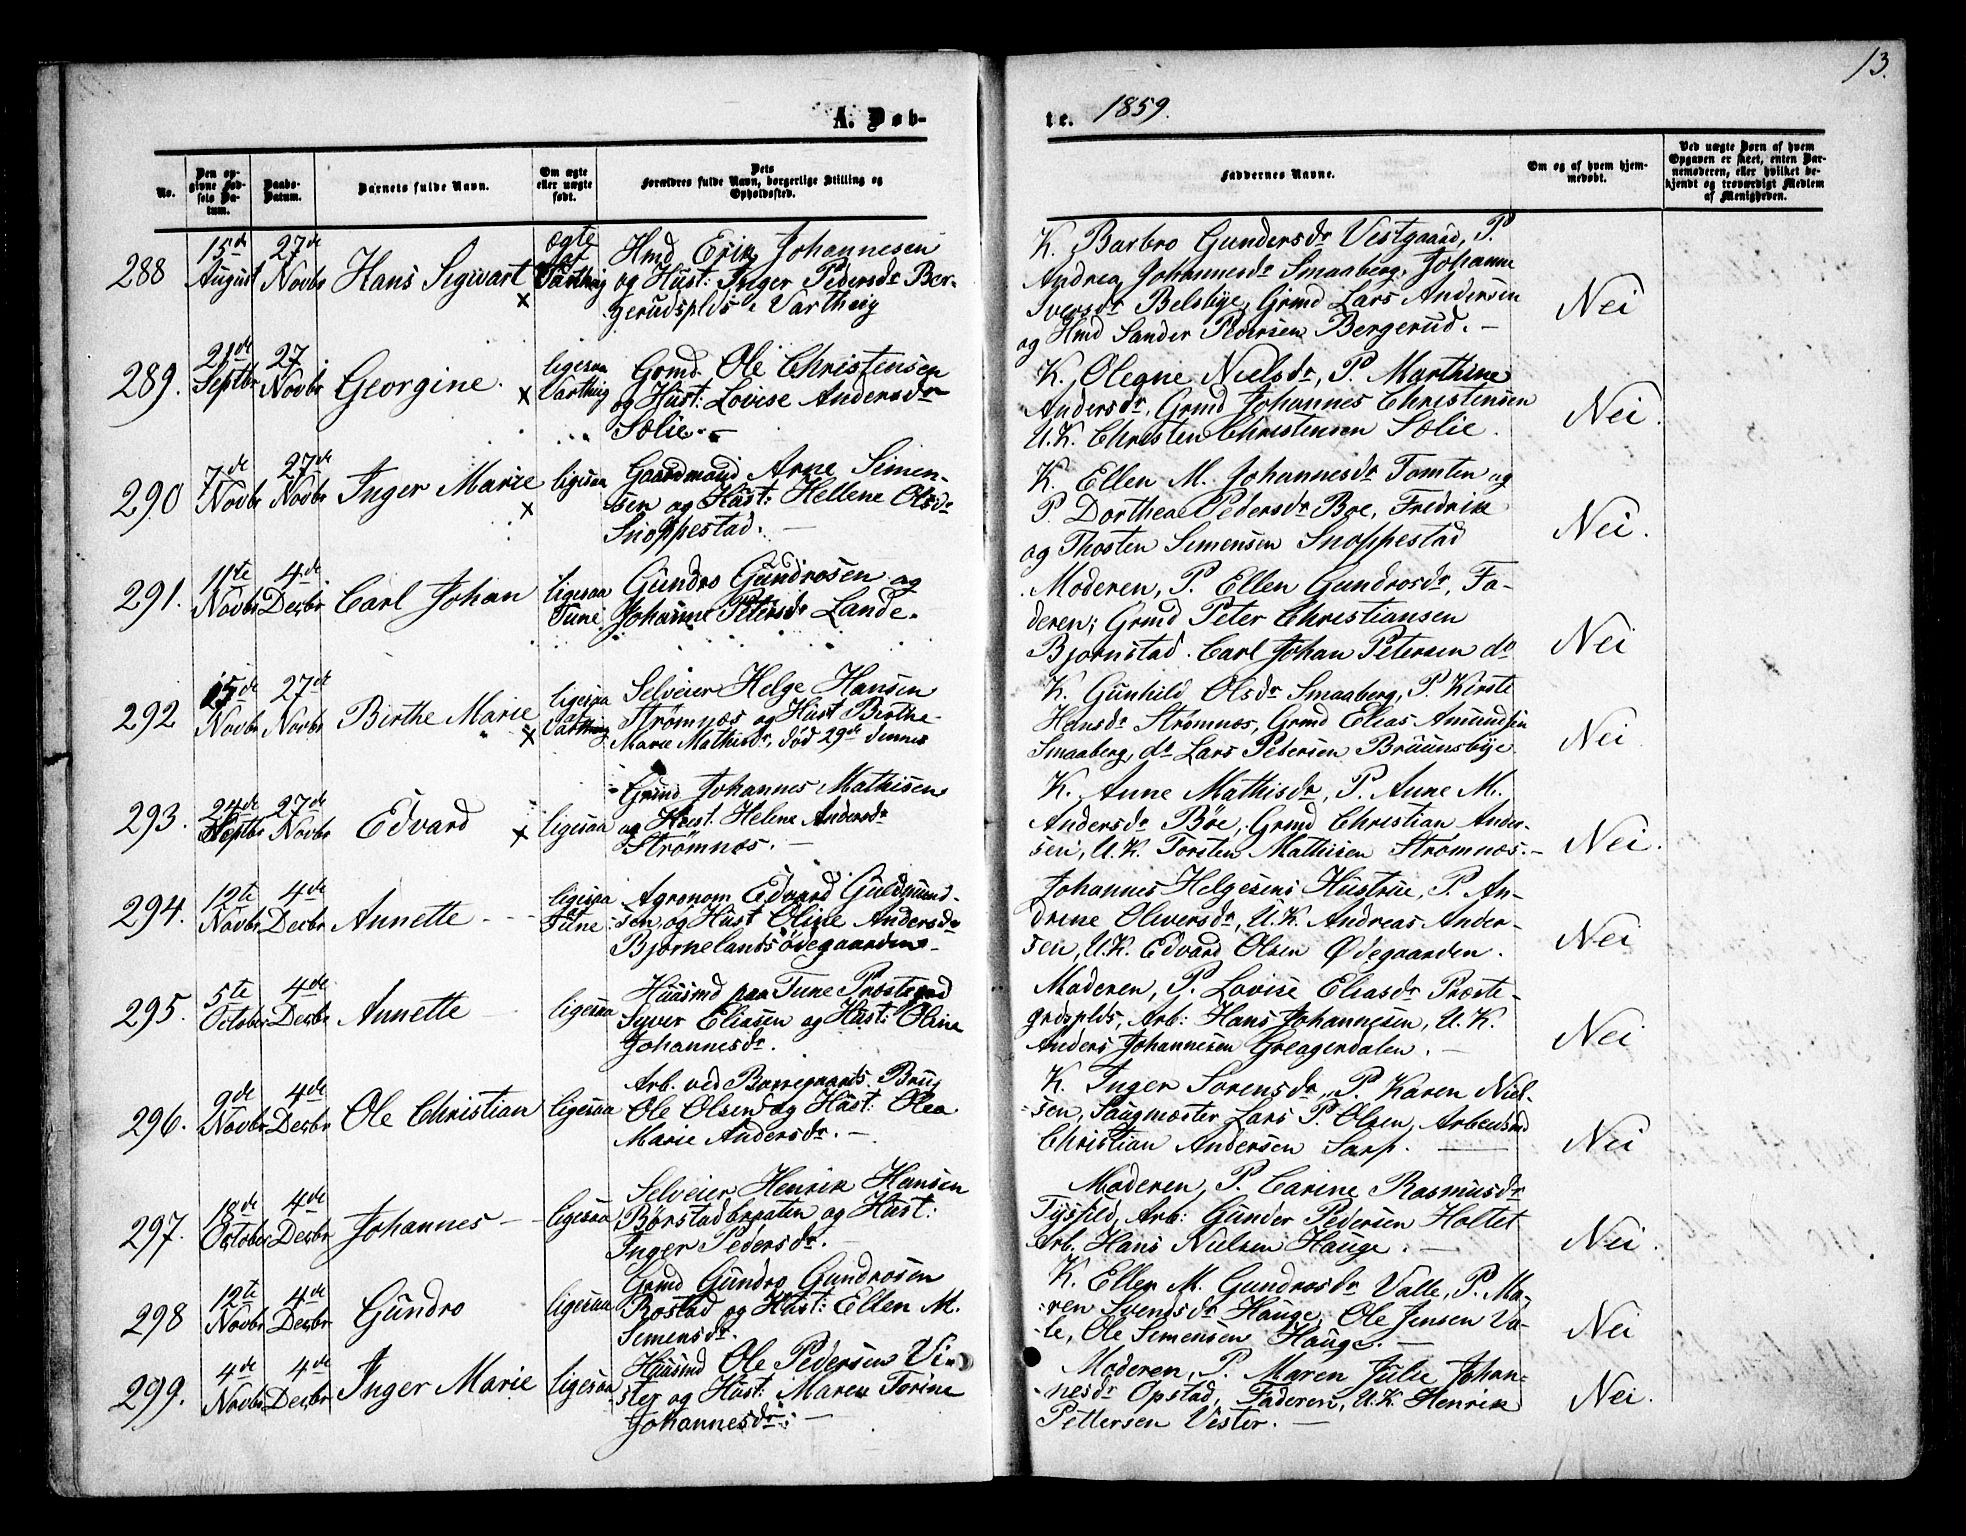 13.
A. Døb-
te. 1859.
No.
Den op-
givne Fød-
sels Da-
tum.
Daabs-
Datum.
Barnets fulde Navn.
Om ægte
eller uægte
født.
Dets
Forældres fulde Navn, borgerlige Stilling og
Opholdssted.
Faddernes Navne.
Om og af hvem hjem-
medøbt.
Ved uægte Børn af hvem
Opgaven er skeet, enten Bar-
nemoderen, eller hvilket be-
kjendt og troværdigt Medlem
af Menigheden.
288
15de
August
27de
Novbr
Hans Sigvart
x
ægte
af
Varteig
Hmd Erik Johannesen
og Hust: Inger Pedersdr Ber-
gerudsplds i Vartheig
K. Barbro Gundersdr Vestgaard, P.
Andrea Johannesdr Smaaberg, Johanne
Iversdr Belsbye, Grmd Lars Andersen
og Hmd Sander Pedersen Bergerud. —
Nei
289.
21de
Septbr
27
Novbr
Georgine.
x
ligesaa
Vartheig
Grmd Ole Christensen
og Hust: Lovise Andersdr
Sælie. —
K. Olegne Nielsdr, P. Marthine
Andersdr, Grmd Johannes Christensen
U.K. Christen Christensen Sælie.
Nei.
290
7de
Novbr
27de
Novbr
Inger Marie
x
ligesaa
Gaardmand Arne Simen-
sen og Hust: Hellene Olsdr
Snoppestad. —
K. Ellen M. Johannesdr Tomten og
P. Dorthea Pedersdr Boe, Fredrik
og Thosten Simensen Snoppestad
Nei.
291.
11te
Novbr
4de
Decbr
Carl Johan
ligesaa
Tune
Gundro Gundrosen og
Johanne Petersdr Lande.
Moderen, P. Ellen Gundrosdr, Fa-
deren; Grmd Peter Christiansen
Bjørnstad. Carl Johan Petersen do
Nei
292
15de
Novbr
27de
Novbr
Birthe Marie
x
ligesaa
af
Vartheig
Selveier Helge Hansen
Strømnæs og Hust Birthe
Marie Mathisdr, død 29de dennes
K. Gunhild Olsdr Smaaberg, P. Kirste
Hansdr Strømnæs, Grmd Elias Amundsen
Smaaberg, do Lars Pedersen Bruunsbye
Nei
293.
24de
Septbr
27de
Novbr
Edvard
x
ligesaa
Grmd Johannes Mathisen
og Hust. Helene Andersdr
Strømnæs. —
K. Anne Mathisdr, P. Anne M.
Andersdr Bøe, Grmd Christian Ander-
sen, U.K. Torsten Mathisen Strømnæs. —
Nei.
294.
12te
Novbr
4de
Decbr
Annette
ligesaa
Tune
Agronom Edvard Guldmund-
sen og Hust Oline Andersdr
Bjørnelandsødegaarden —
Johannes Helgesens Hustrue, P. An-
drine Oliversdr, U.K. Andreas Ander-
sen, U.K. Edvard Olsen Ødegaarden.
Nei
295.
5te
October
4de
Decbr
Annette
ligesaa
Huusmd paa Tune Præstegrd
Syver Eliasen og Hust: Oline
Johannesdr.
Moderen, P. Lovise Eliasdr Præste-
grdsplds, Arb: Hans Johannesen, U.K.
Anders Johannesen Greagerdalen. —
Nei
296.
9de
Novbr
4de
Decbr
Ole Christian
ligesaa
Arb. ved Borregaards Brug
Ole Olsen og Hust: Olea
Marie Andersdr. —
K. Inger Sorensdr, P. Karen Niel-
sen, Saugmester Lars P. Olsen, Arbeidsmd
Christian Andersen Sarp. —
Nei
297.
18de
October
4de
Decbr
Johannes
ligesaa
Selveier Henrik Hansen
Børstadbraaten og Hust:
Inger Pedersdr. —
Moderen, P. Carine Rasmusdr
Tysfeld, Arb: Gunder Pedersen Holtet
Arb. Hans Nielsen Hauge. —
Nei.
298
12te
Novbr
4de
Decbr
Gundro
ligesaa
Grmd Gundro Gundrosen
Rostad og Hust: Ellen M.
Simensdr.
K. Ellen M. Gundrosdr Valle, P. Ma-
ren Svendsdr Hauge, Ole Jensen Va-
le, Ole Simensen Hauge. —
Nei
299.
4de
Novbr
4de
Decbr
Inger Marie
ligesaa
Huusmd Ole Pedersen Vi-
ster og Hust: Maren Torine
Johannesdr. —
Moderen, P. Maren Julie Johan-
nesdr Opstad, Faderen, U.K. Henrik
Pettersen Vister. —
Nei.